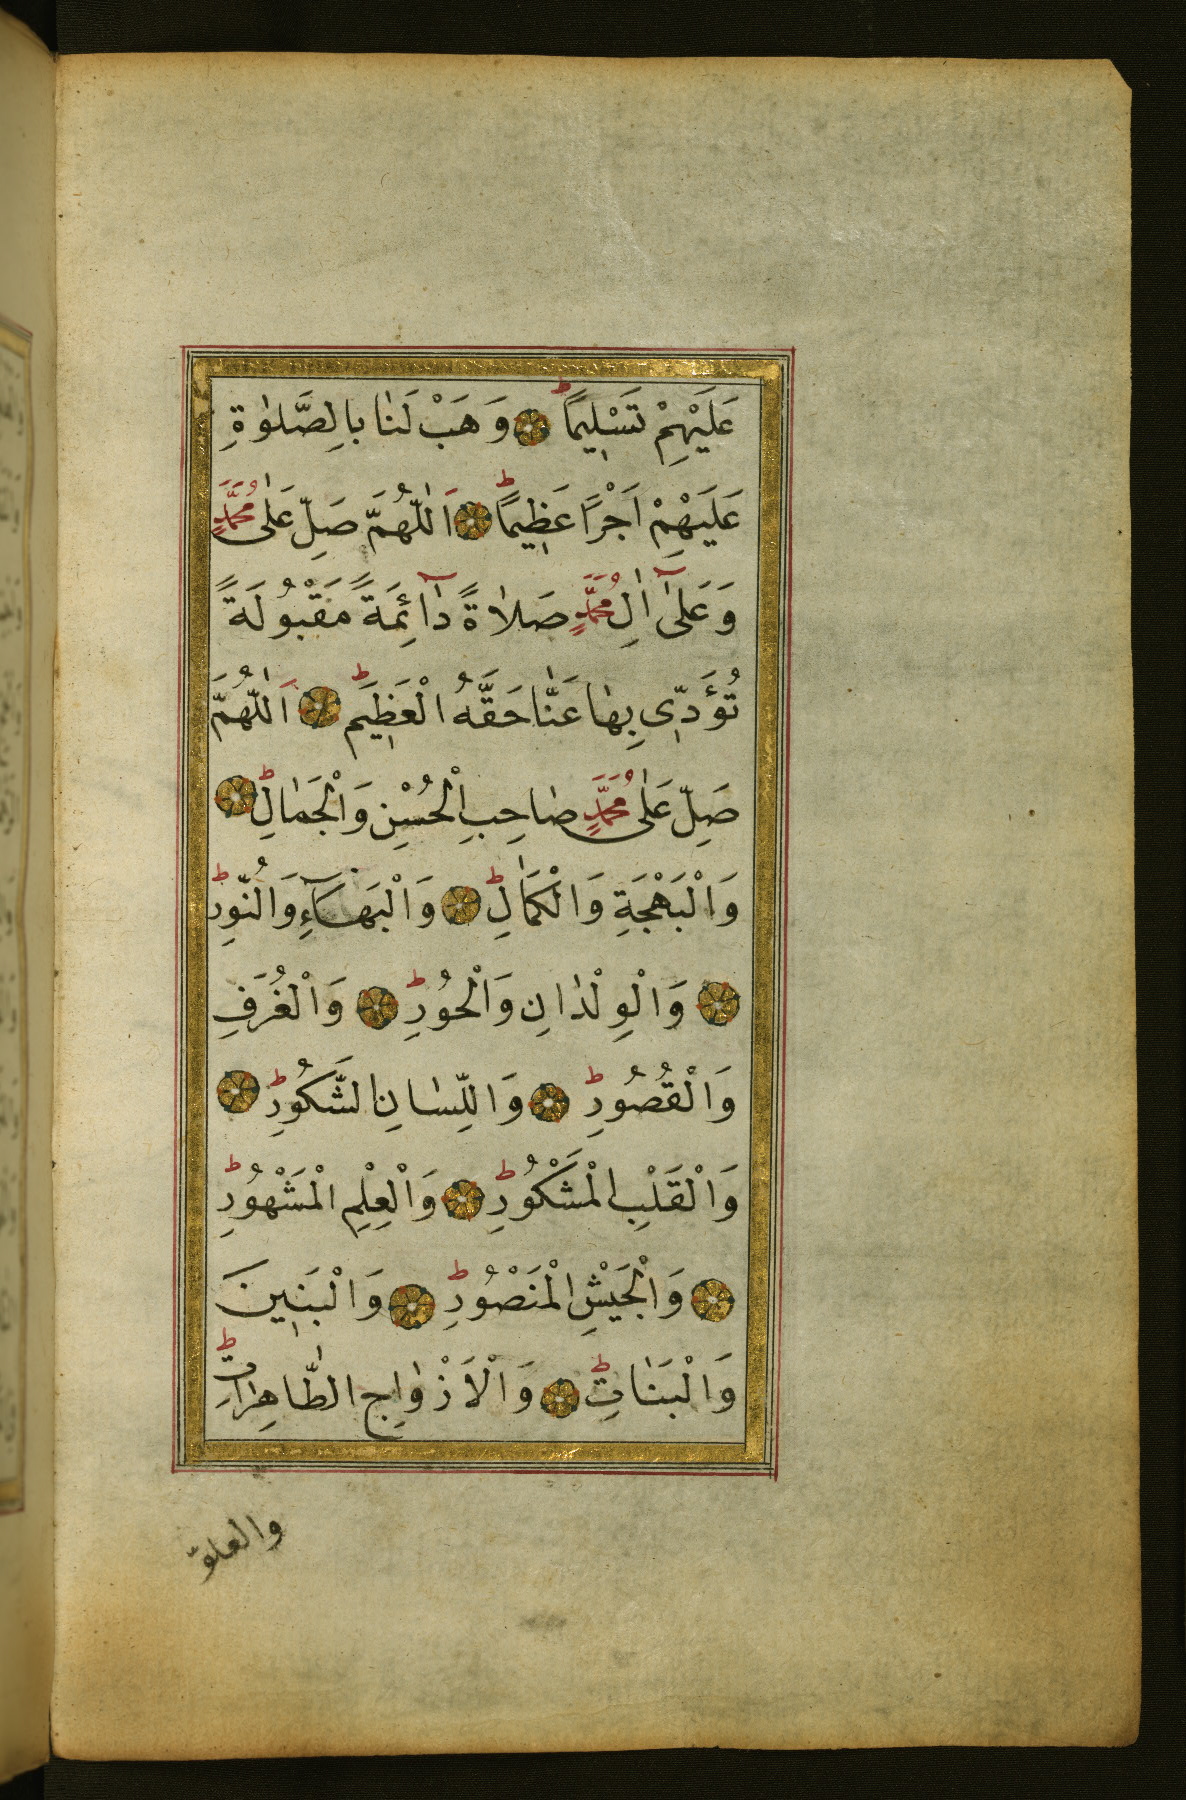 عَلَيْهِمْ تَسْلِيمًا ط وَهَبْ لَنَا بِالصَّلٰوةِ
عَلَيْهِمْ اَجْرًا عَظِيمًا ط اَللّٰهُمَّ صَلِّ عَلٰى مُحَمَّدٍ
وَعَلٰٓى اٰلِ مُحَمَّدٍ صَلَاةً دَآئِمَةً مَقْبُولَةً
تُؤَدِّى بِهَا عَنَّا حَقَّهُ الْعَظِيمَ ط اَللّٰهُمَّ
صَلِّ عَلٰى مُحَمَّدٍ صَاحِبِ الْحُسْنِ وَالْجَمَالِ ط
وَالْبَهْجَةِ وَالْكَمَالِ ط وَالْبَهَآءِ وَالنُّورِ ط
وَالْوِلْدَانِ وَالْحُورِ ط وَالْغُرَفِ
وَالْقُصُورِ ط وَاللِّسَانِ الشَّكُورِ ط
وَالْقَلْبِ الْمَشْكُورِ ط وَالْعِلْمِ الْمَشْهُورِ ط
وَالْجَيْشِ الْمَنْصُورِ ط وَالْبَنِينَ
وَالْبَنَاتِ ط وَالْاَزْوَاجِ الطَّاهِرَاتِ ط
والعلوّ